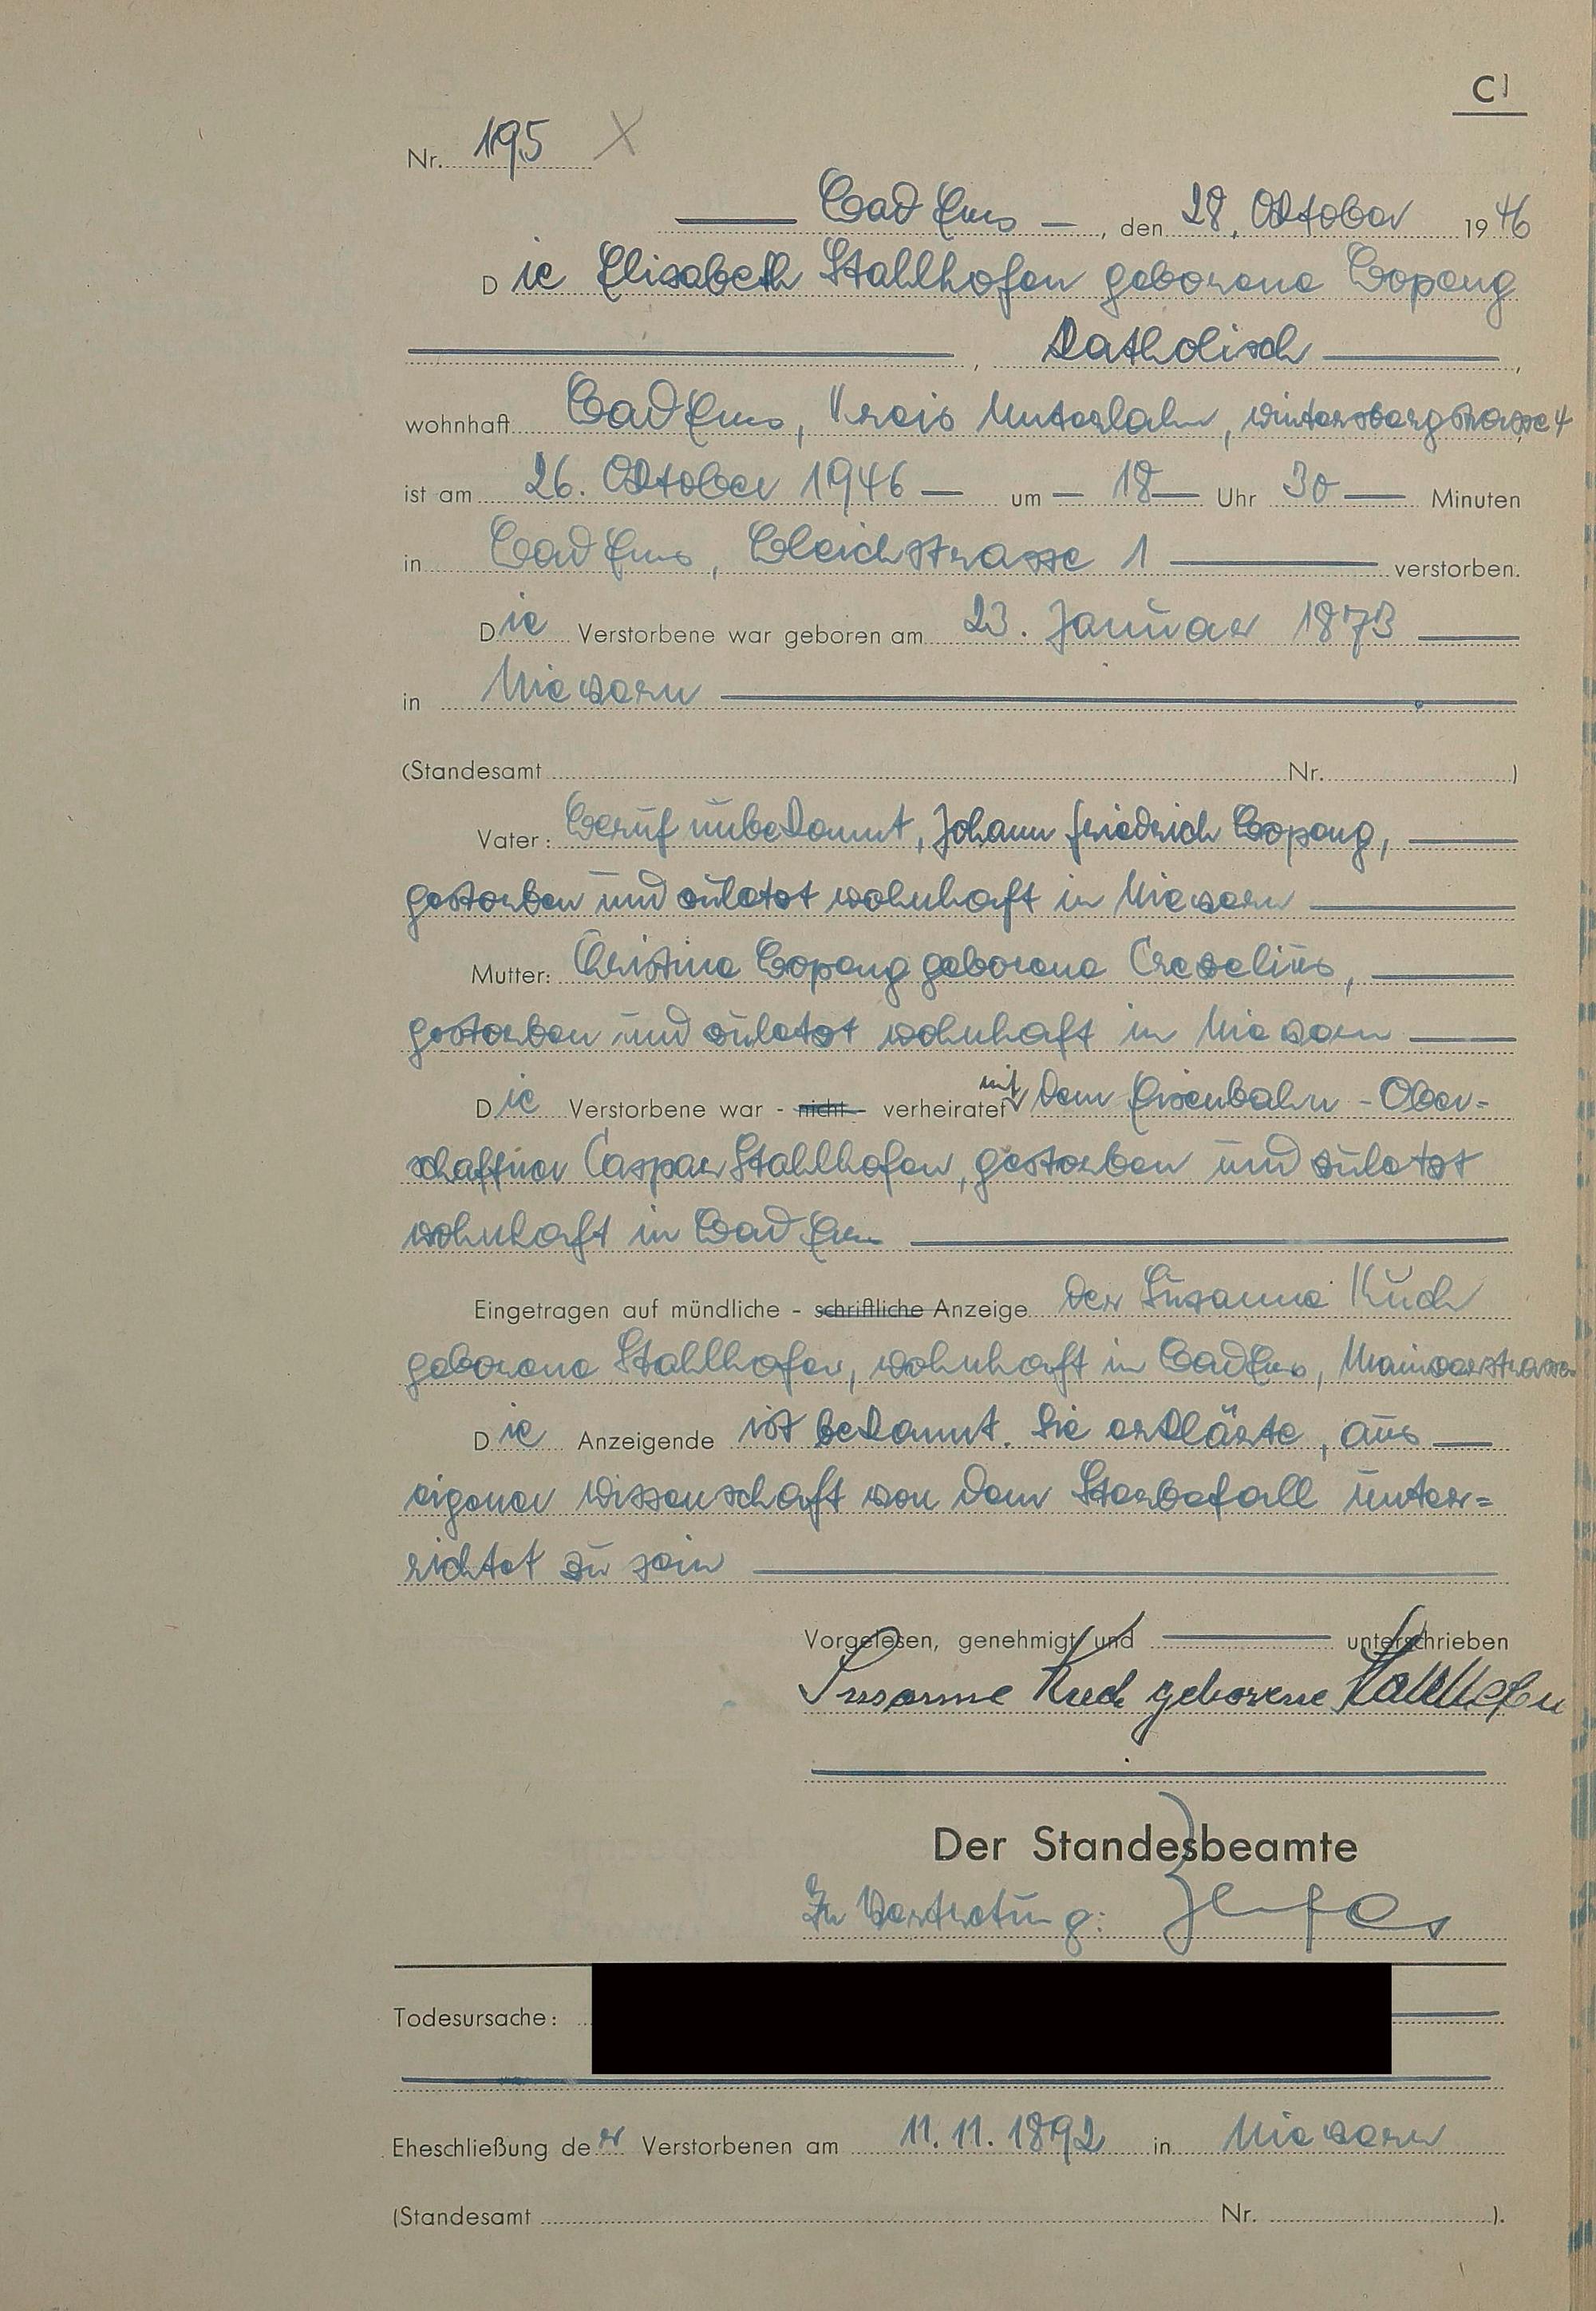 C
Nr. 195
Bad Ems, den 28. Oktober 1946
Die Elisabeth Stahlhofen geborene Bopang
, katholisch,
wohnhaft Bad Ems, Kreis Unterlahn, Wintersbergstrasse 4
ist am 26. Oktober 1946 um 18 Uhr 30 Minuten
in Bad Ems, Bleichstrasse 1 verstorben.
Die Verstorbene war geboren am 23. Januar 1873
in Miesern
(Standesamt Nr. )
Vater: Beruf unbekannt, Johann Friedrich Bopang,
gestorben und zuletzt wohnhaft in
Mutter: Christina Bopang geborene
gestorben und zuletzt wohnhaft in
Die Verstorbene war - nicht - verheiratet mit dem Eisenbahn-Ober-
schaffner Caspar Stahlhofen, gestorben und zuletzt
wohnhaft in Bad Ems
Eingetragen auf mündliche - schriftliche Anzeige der Susanna Kuch
geborene Stahlhofen, wohnhaft in Bad Ems, Mainzerstrasse
Die Anzeigende ist bekannt. Sie erklärte, aus
eigener Wissenschaft von dem Sterbefall unter=
richtet zu sein
Vorgelesen, genehmigt und unterschrieben
Susanne Kuch geborene Stahlhofen
Der Standesbeamte
In Vertretung:
Todesursache:
Eheschließung der Verstorbenen am 11.11.1892 in
(Standesamt Nr. ).